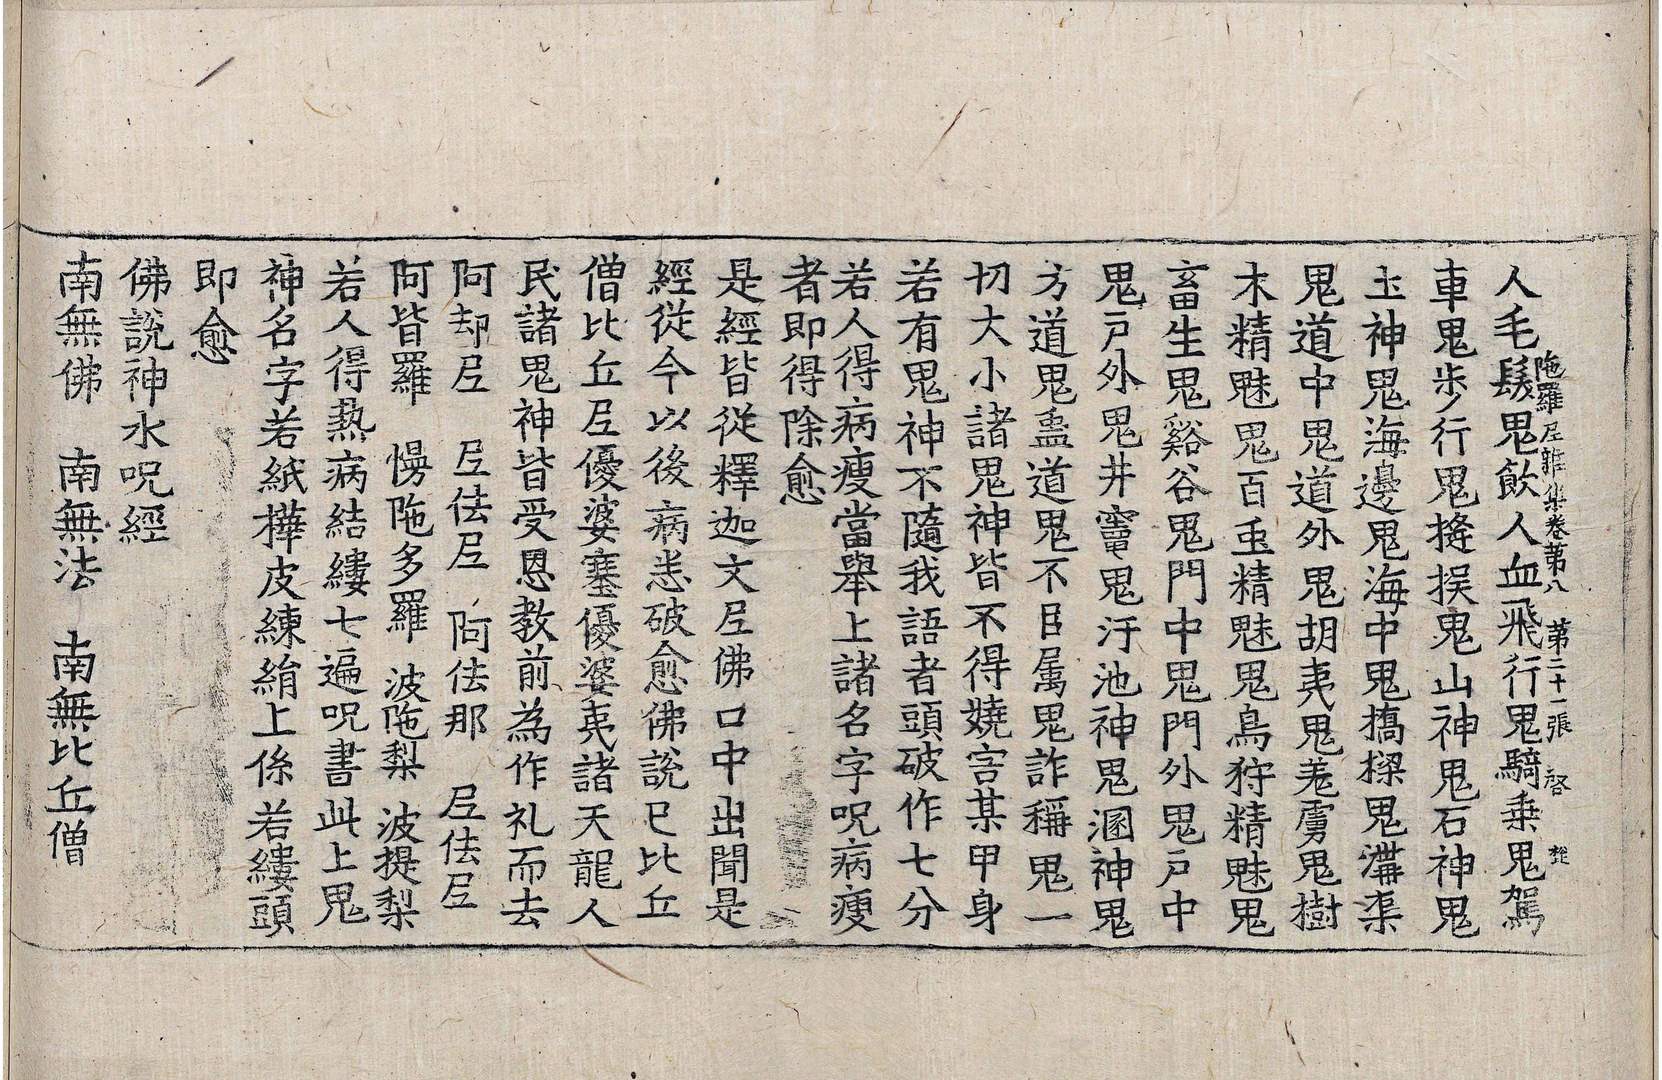 陁羅尼雜集卷第八 第二十一張 啓
人毛髮鬼飲人血飛行鬼騎乗鬼駕
車鬼步行鬼捲捑鬼山神鬼石神鬼
土神鬼海邊鬼海中鬼橋樑鬼溝渠
鬼道中鬼道外鬼胡夷鬼羌虜鬼樹
木精魅鬼百虫精魅鬼鳥狩精魅鬼
畜生鬼谿谷鬼門中鬼門外鬼戶中
鬼戶外鬼井竈鬼汙池神鬼溷神鬼
方道鬼蠱道鬼不臣属鬼詐稱鬼一
切大小諸鬼神皆不得嬈害某甲身
若有鬼神不隨我語者頭破作七分
若人得病瘦當舉上諸名字呪病瘦
者即得除愈
是經皆從釋迦文尼佛口中出聞是
經從今以後病恙破愈佛說已比丘
僧比丘尼優婆塞優婆夷諸天龍人
民諸鬼神皆受恩教前為作礼而去
阿却尼 尼佉尼 阿佉那 尼佉尼
阿皆羅 慢陁多羅 波陁梨 波提梨
若人得熱病結縷七遍呪書此上鬼
神名字若紙樺皮練絹上係若縷頭
即愈
佛說神水呪經
南無佛 南無法 南無比丘僧